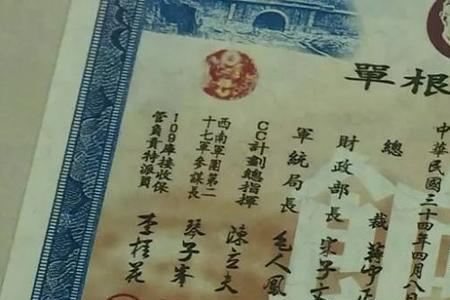 單根
中華民國三十四年四月八日
總裁 蔣中正
財政部長 宋子文
軍統局長 毛人鳳
CC計劃總指揮 陳立夫
西南軍團第二十七軍參謀長 琴子峯
109庫接收保管負責特派員 李桂花